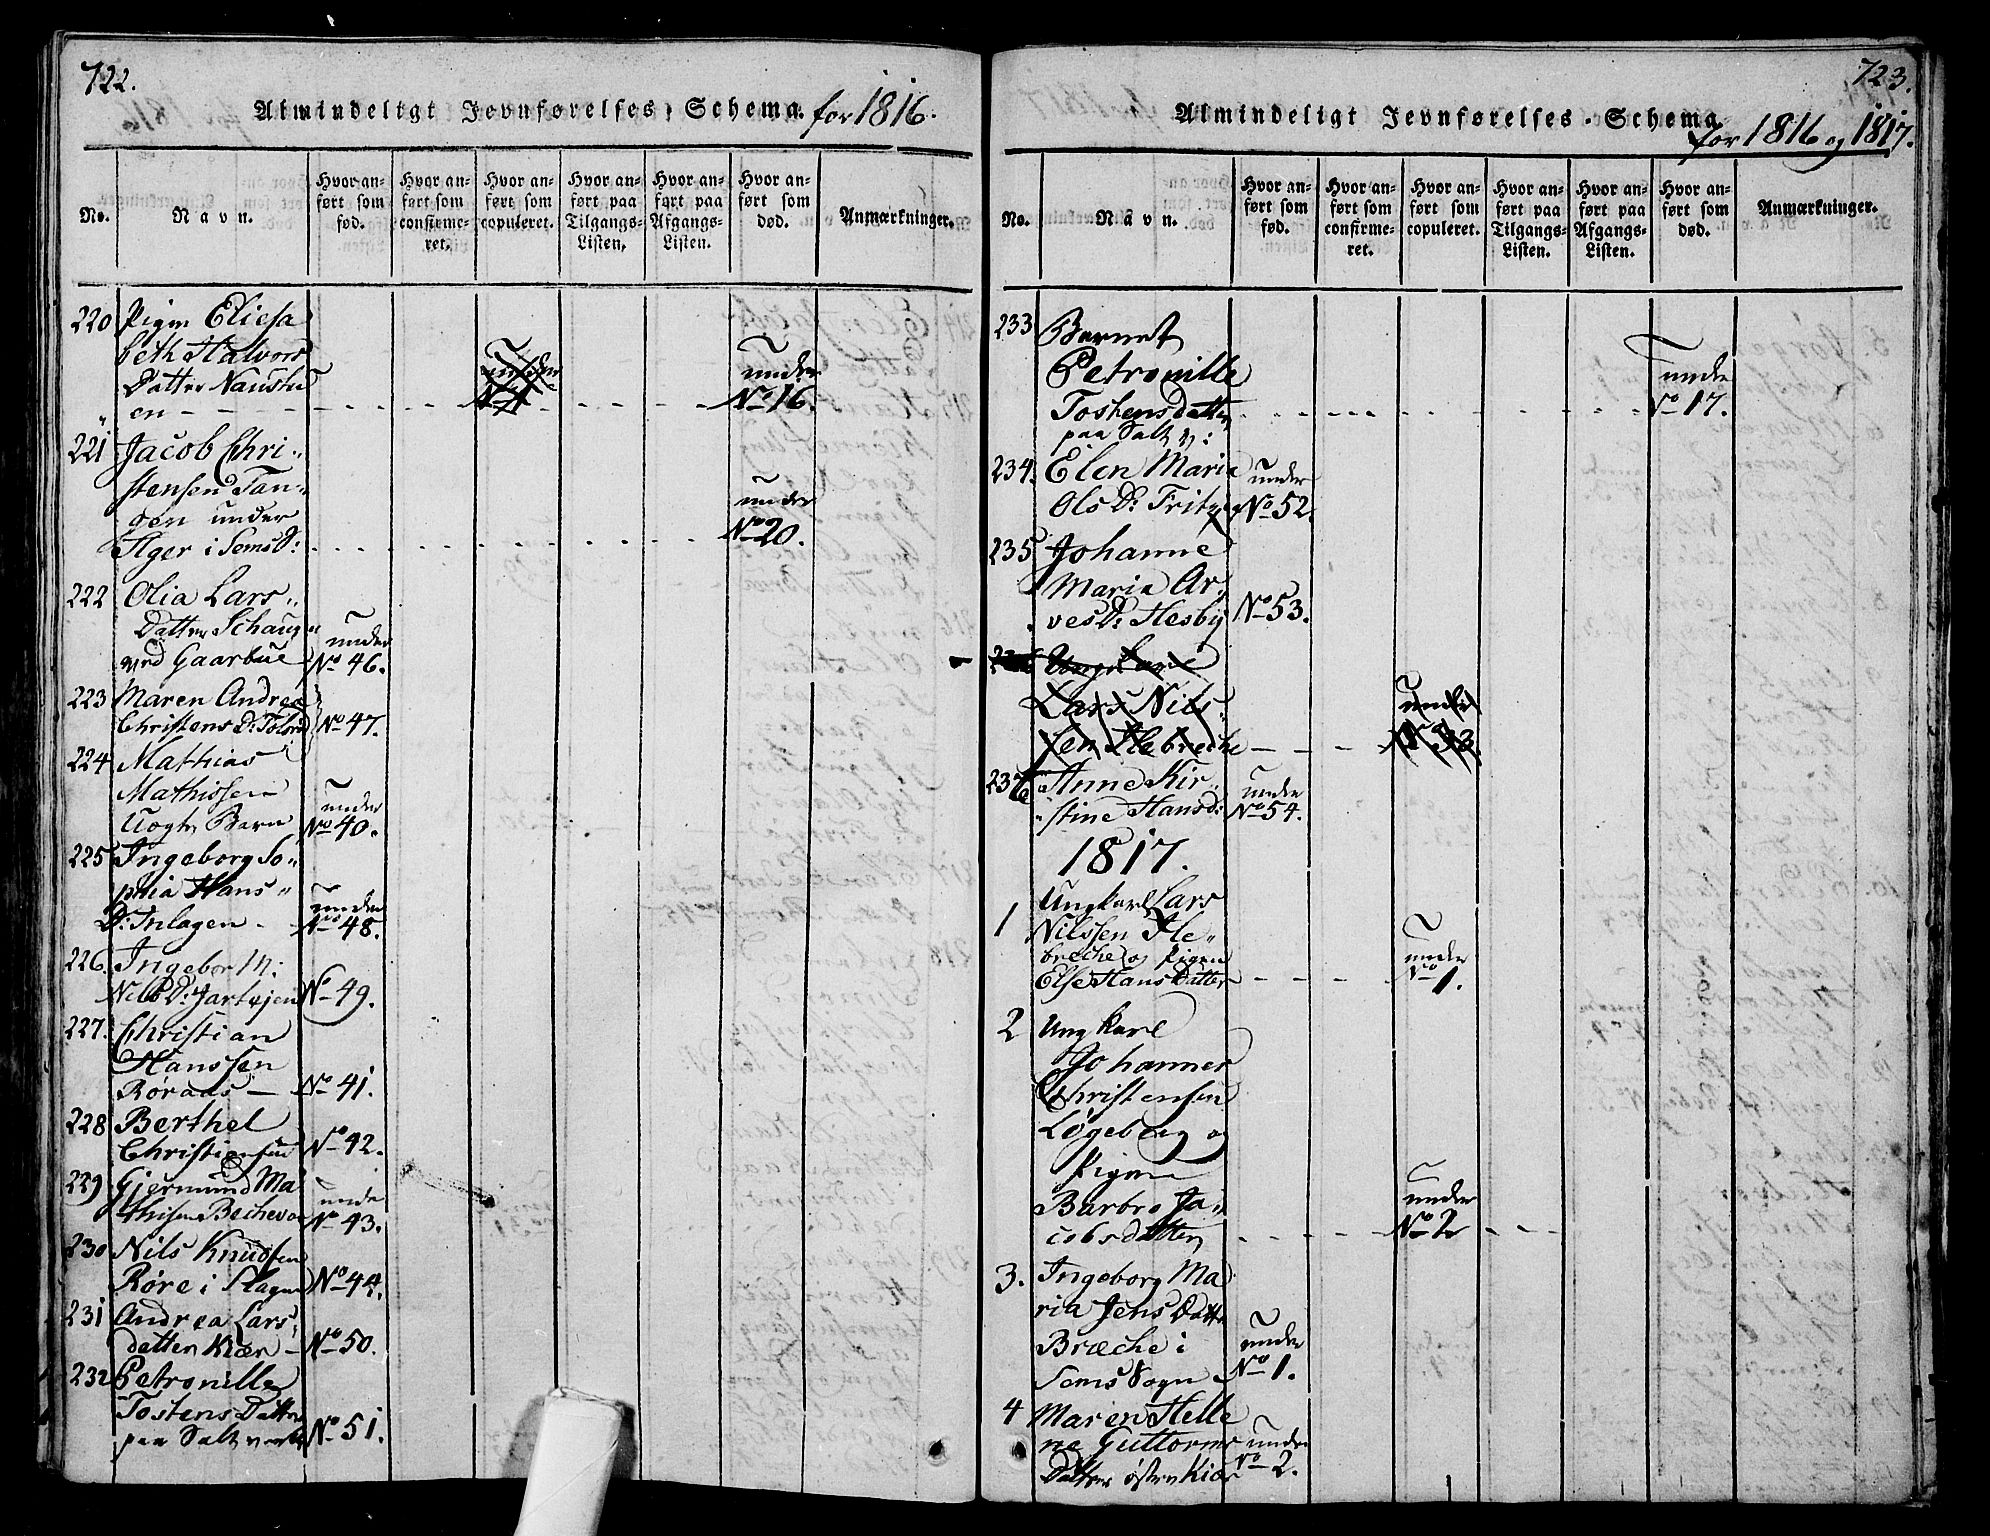 722.
Almindeligt Jevnførelses-Schema. for 1816.
No.
Navn.
Hvor anført som fød.
Hvor anført som confirmeret.
Hvor anført som copuleret.
Hvor anført paa Tilgangs-Listen.
Hvor anført paa Afgangs-Listen.
Hvor anført som død.
Anmærkninger.
220 Pigen Eliesa
beth Halvors
Datter
en - - - under No 16.
221 Jacob Chri-
stensen Tan-
gen under
Ager i Sems S: . . . under No 20.
222 Olia Lars
Datter Schaug
ved Gaarbue under No 46.
223 Maren Andrea
Christens D: No 47.
224 Mathias
Mathissen
Barn under No 40.
225 Ingeborg So-
phia Hans
D: Inlagen. under No 48.
226. Ingebor M:
Nils D: No 49.
227. Christian
Hanssen
Røraas - No 41.
228 Berthel
Christiansen No 42.
229 Gjermund Ma
thisen under No 43.
230 Nils Knudsen
Røre i Slagen No 44.
231 Andrea Lars
datter Kiær - No 50.
232 Petronille
Tostens Datter
paa Saltværk No 51.
723.
Almindeligt Jevnførelses-Schema
for 1816 og 1817.
No.
Navn.
Hvor anført som fød.
Hvor anført som confirmeret.
Hvor anført som copuleret.
Hvor anført paa Tilgangs-Listen.
Hvor anført paa Afgangs-Listen.
Hvor anført som død.
Anmærkninger.
233 Barnet
Petronille
Tostensdatter . . . under No 17.
paa Saltv:
234. Elen Maria
Ols D: under No 52.
235 Johanne
Maria Ar-
ves D: Hesby No 53.
Ungkarl
Lars Nils-
sen Flebreche - - - under
236 Anne Kir-
stine Hans D: under No 54.
1817.
1 Ungkarl Lars
Nilssen Fle-
breche og Pigen
Else Hans Datter - - - under No 1.
2 Ungkarl
Johannes
Christensen
Løgeberg og
Pigen
Barbro Ja-
cobsdatter . . . under No 2
3. Ingeborg Ma
ria Jens Datter
Bræche i
Sems Sogn under No 1.
4 Maren Helle
ne Guttorms
Datter østen Kiær under No 2.